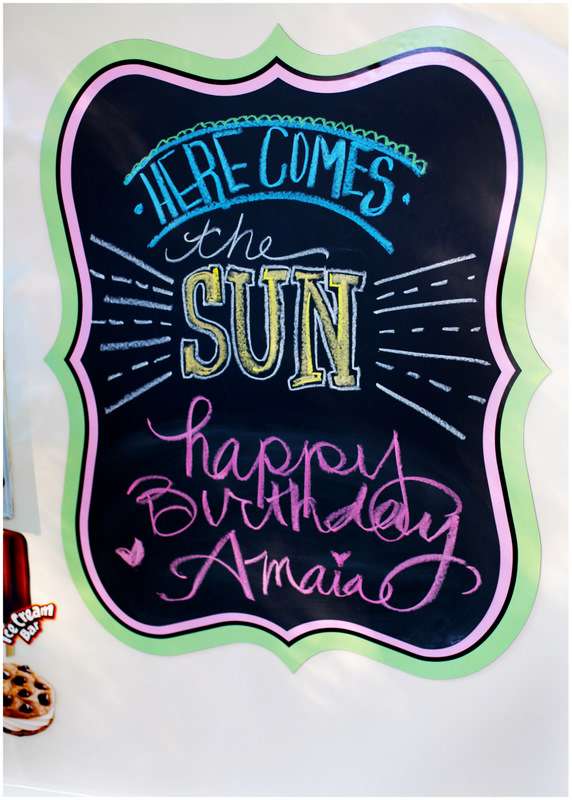 HERE COMES
the
SUN
happy
Birthday
Amaia
Ice Cream
Bar